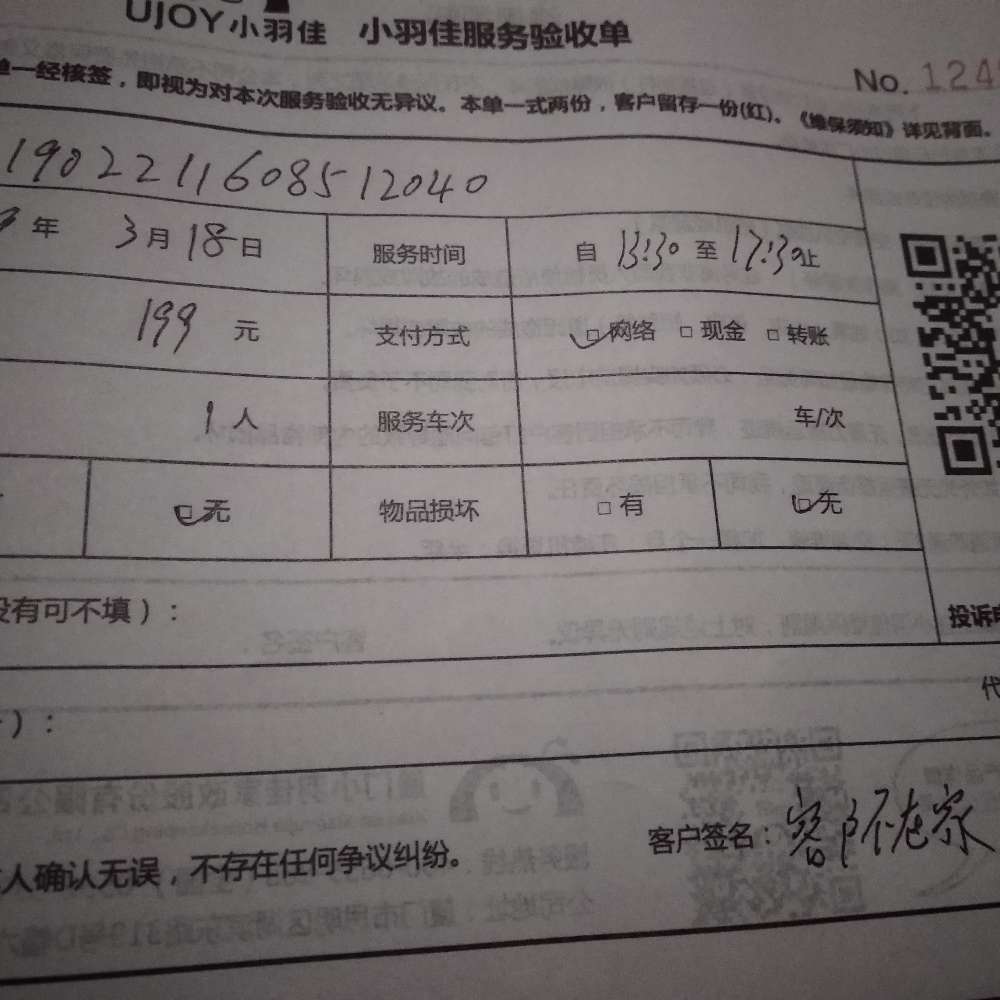 UJOY小羽佳 小羽佳服务验收单
No. 124
单一经核签，即视为对本次服务验收无异议。本单一式两份，客户留存一份(红)。《维保须知》详见背面。
190221160851 2040
年 3月18日 服务时间 自 13:30 至 17:30止
199 元 支付方式 □网络 □现金 □转账
1人 服务车次 车/次
□无 物品损坏 □有 □无
没有可不填）：
投诉
代
）：
客户签名：客户不在家
人确认无误，不存在任何争议纠纷。